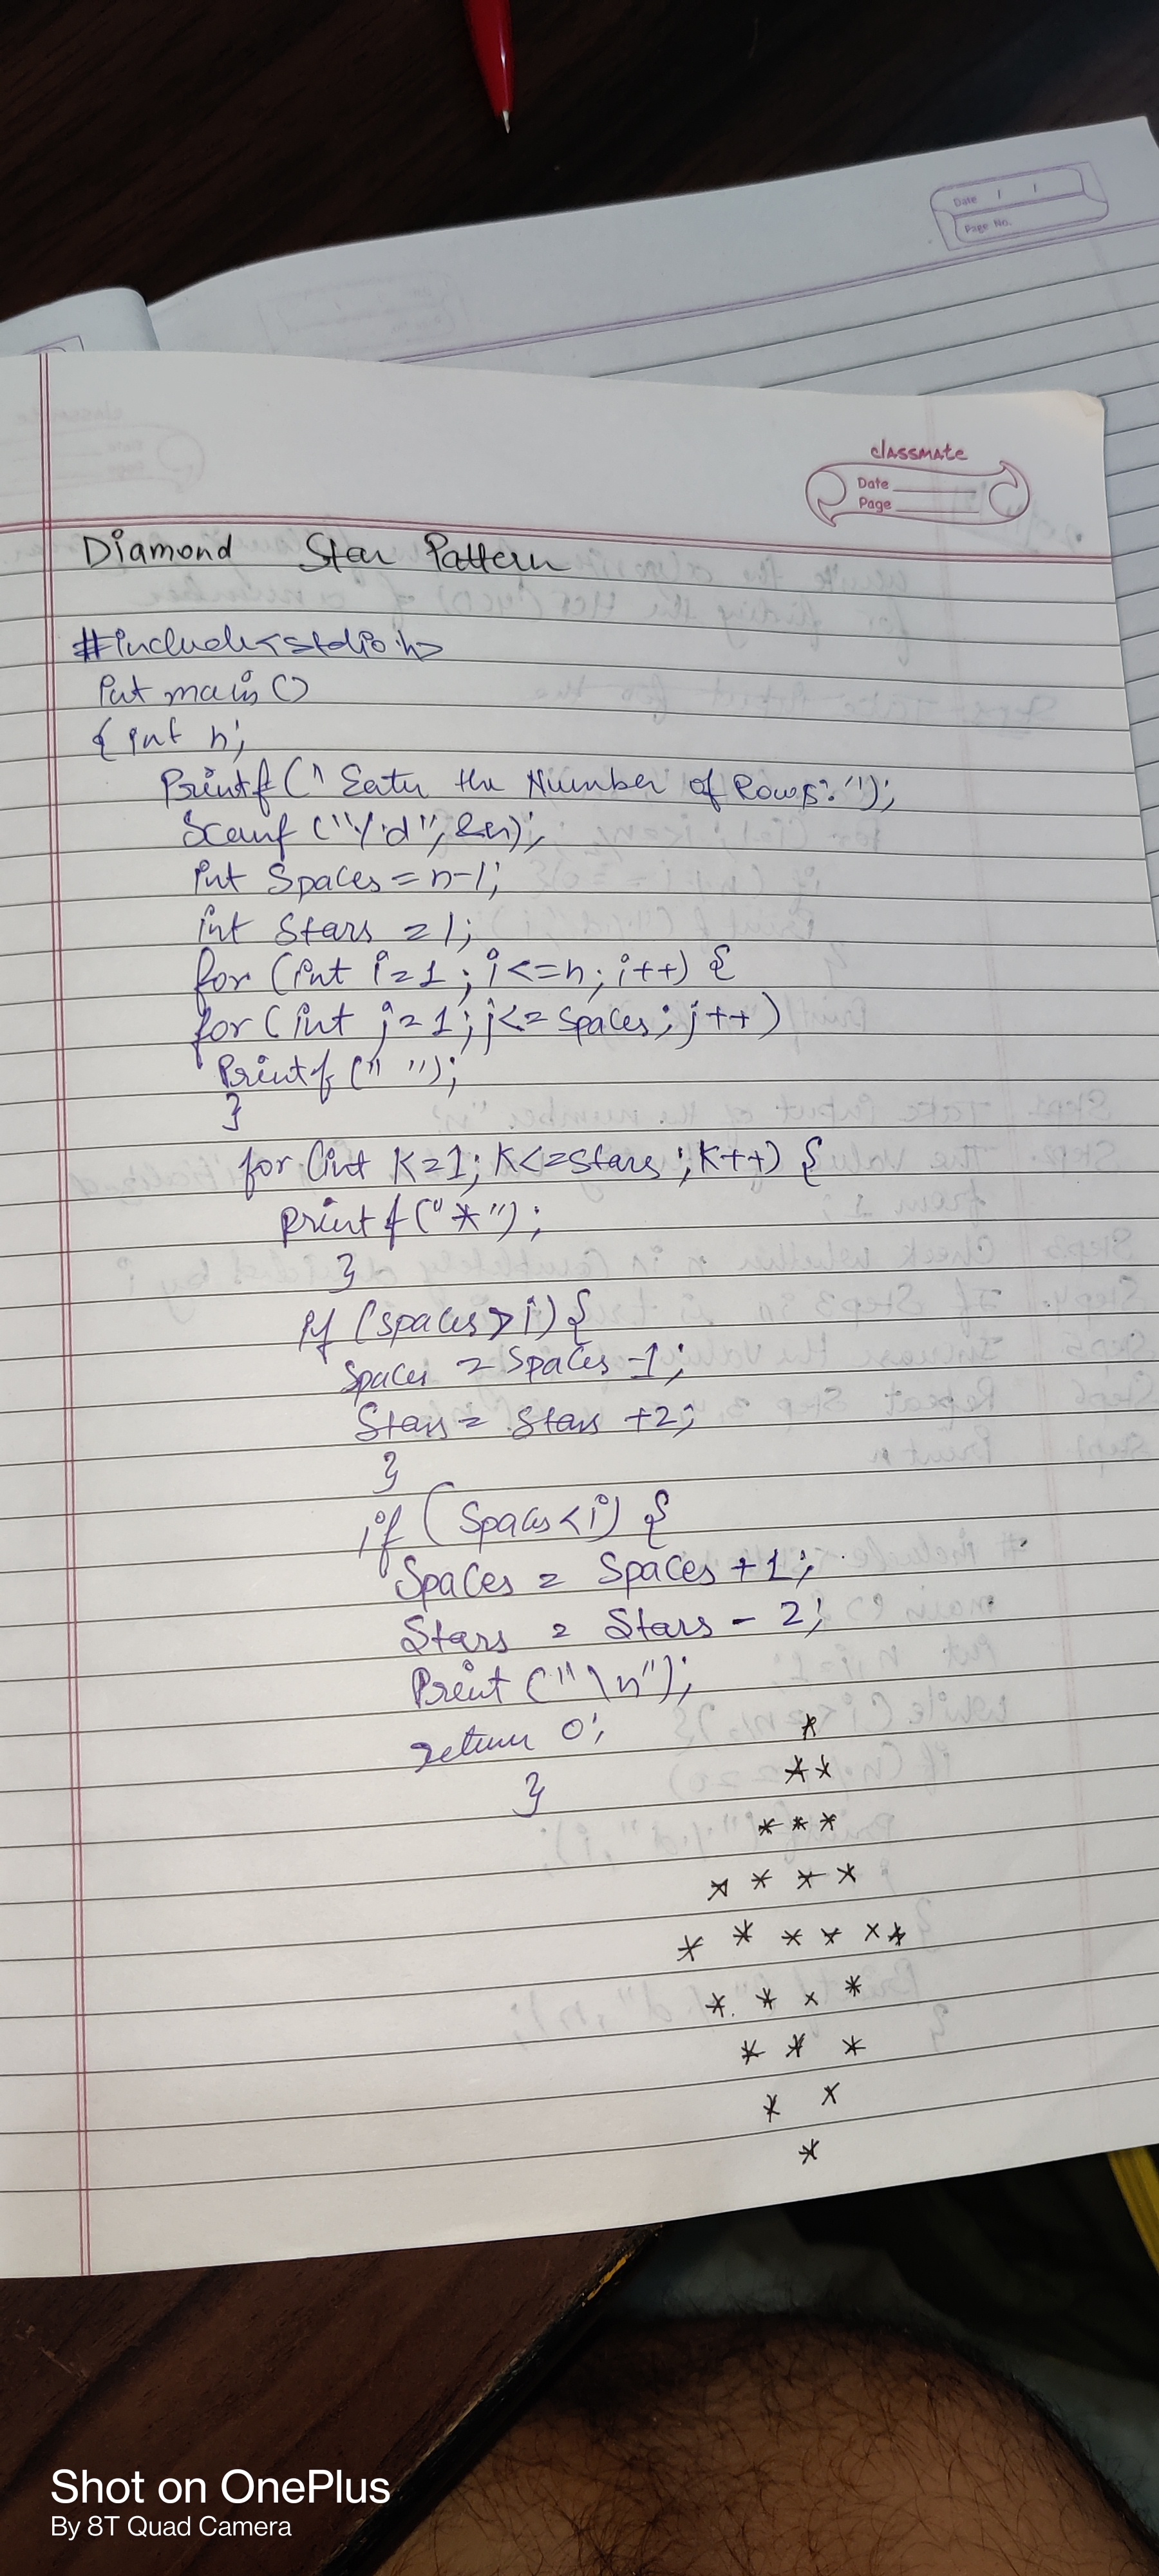 Date / /
Page No.
classmate
Date
Page
Diamond Star Pattern
#include<stdio.h>
int main()
{ int n;
Printf(" Enter the Number of Rows:");
Scanf ("%d", &n);
int Spaces = n-1;
int Stars = 1;
for (int i=1; i<=n; i++) {
for (int j=1; j<= Spaces; j++)
Printf (" ");
}
for (int K=1; K<=stars; K++) {
printf ("*");
}
if (spaces > i) {
Spaces = Spaces -1;
Stars = Stars +2;
}
if (Spaces < i) {
Spaces = Spaces + 1;
Stars = Stars - 2;
Print ("\n");
return 0;
}
*
* *
* * *
* * * *
* * * * * *
* * * *
* * *
* *
*
Shot on OnePlus
By 8T Quad Camera